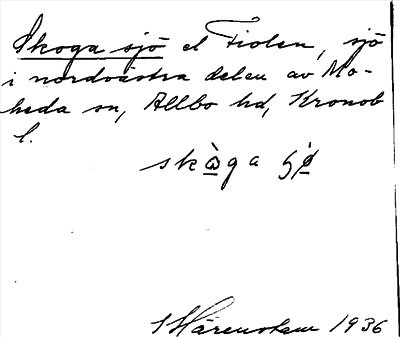 Skoga sjö el Fiolen, sjö
i nordvästra delen av Mo-
heda sn, Allbo hd, Kronob
l.
skòga
1936